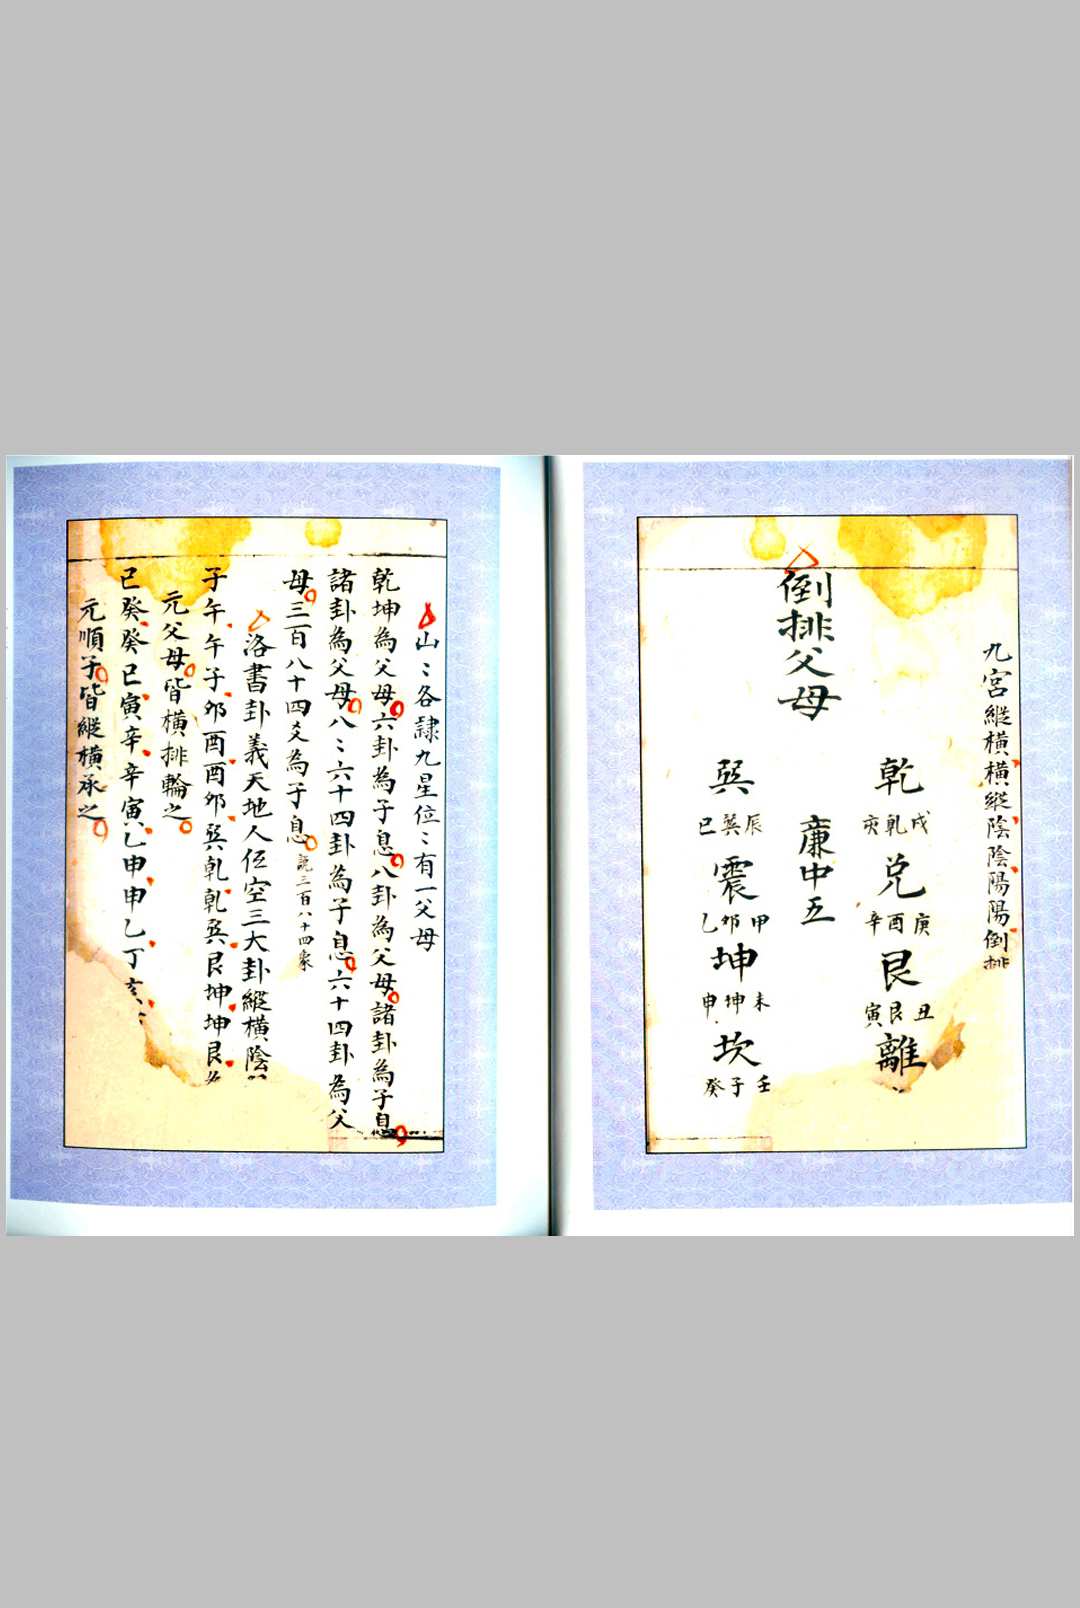 九宮縱橫橫縱陰陰陽陽倒排
乾
戌乾亥
兌
庚酉辛
艮
丑艮寅
離
倒排父母
廉中五
巽
辰巽巳
震
甲夘乙
坤
未坤申
坎
壬子癸
山〻各隸九星位〻有一父母
乾坤為父母六卦為子息八卦為父母諸卦為子息
諸卦為父母八〻六十四卦為子息六十四卦為父
母三百八十四爻為子息 説三百八十四象
洛書卦義天地人伍空三大卦縱橫陰
子午午子夘酉酉夘巽乾乾巽艮坤坤艮
元父母皆橫排輪之
巳癸癸巳寅辛辛寅乙申申乙丁亥
元順子皆縱橫承之